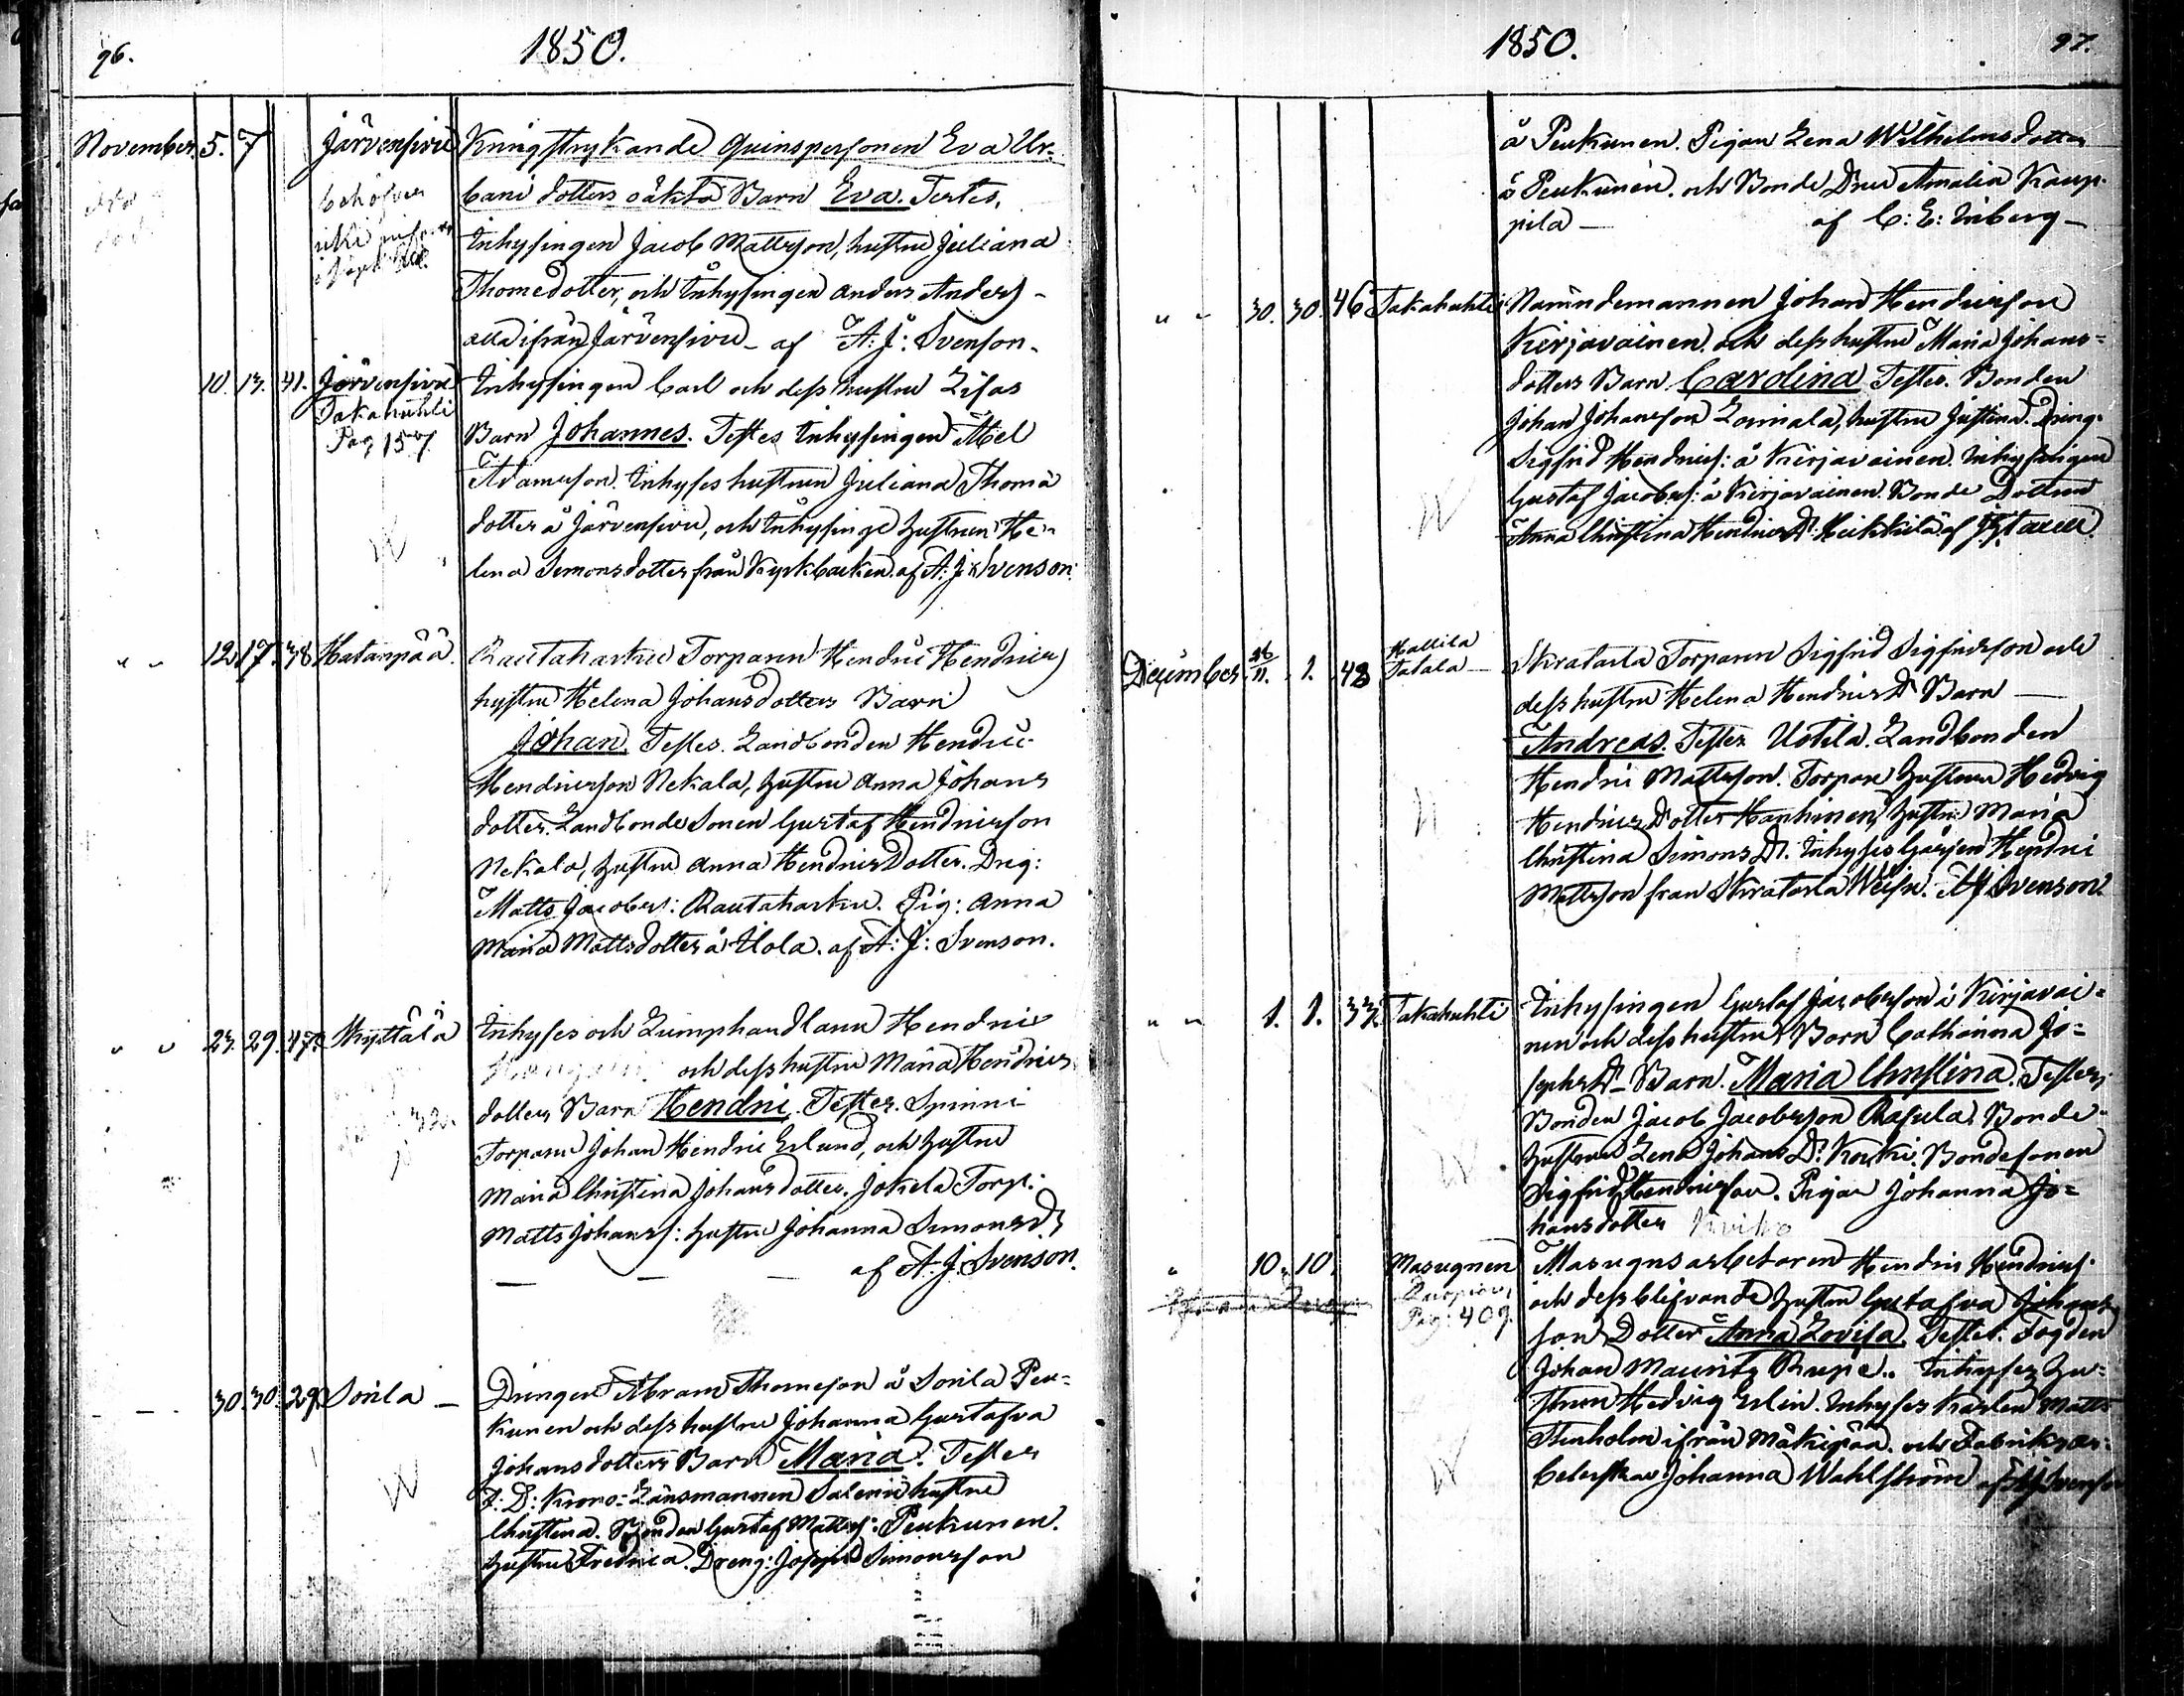 96.
1850.
November. 5. 7 Järvensivu Kringstrykande Quinspersonen Eva Ur-
behöfver bani dotters oäkta Barn Eva. Testes.
icke Inhysingen Jacob Mattsson, hustru Juliana
Thomedotter, och Inhysingen Anders Anders-
ifrån Järvensivu - af A: J: Svenson.
10. 13. 41. Järvensivu Inhysingen Carl och dess hustru Lisas
Takahuhti Barn Johannes. Testes Inhysingen Abel
Pag 157. Adamsson. Inhyses hustrun Juliana Thomä
dotter å Järvensivu, och Inhysinge hustrun He-
lena Simonsdotter från Kyrkbacken. af A: J: Svenson.
" " 12. 17. 38 Hatanpää. Rautaharku Torparn Hendric Hendrics
hustru Helena Johansdotters Barn
Johan. Testes. Landbonden Hendric
Hendricsson Nekala, hustru Anna Johans
dotter. Landbonde Sonen Gustaf Hendricsson
Nekala, hustru Anna Hendricsdotter. Dreg:
Matts Jacobss: Rautaharku. Pig: Anna
Maria Mattsdotter å Uola. af A: J: Svenson.
" " 23. 29. 47. Hyttälä Inhyses och Lumphandlarn Hendric
och dess hustru Maria Hendrics
dotters Barn Hendric. Testes. Spinni
Torparn Johan Hendric Erlund, och hustru
Maria Christina Johansdotter. Jokela Torp:
Matts Johanss: hustru Johanna Simonsdr
af A. J. Svenson.
30. 30. 29. Sorila — Drengen Abram Thomesson å Sorila Peu-
kunen och dess hustru Johanna Gustafva
Johansdotters Barn Maria. Testes
T: D: Krono-Länsmannen Salenii hustru
Christina. Bonden Gustaf Mattss: Peukunen.
hustru Fredrica. Dreng: Joseph Simonsson
1850.
97.
å Peukunen. Pigan Lena Wilhelmsdotter
å Peukunen. och Bonde Drn Amalia Kaup-
pila — af C: E: Inberg —
" " 30. 30. 46 Takahuhti Nämndemannen Johan Hendricsson
Kirjavainen. och dess hustru Maria Johans-
dotters Barn Carolina Testes. Bonden
Johan Johansson Lomiala, hustru Justina. Dreng:
Sigfrid Hendricss: å Kirjavainen. Inhysingen
Gustaf Jacobss: å Kirjavainen. Bonde Dottren
Anna Christina Hendrics Dr. Heikkilä af
December 26/11. 1. 48 Hallila
Tatala — Torparen Sigfrid Sigfridsson och
dess hustru Helena Hendrics Dr Barn —
Andreas. Testes Uotila Landbonden
Hendric Mattsson. Torpare hustrun Hedvig
Hendrics Dotter Hanhinen, hustru Maria
Christina Simons Dr. Inhyses Hendric
Mattsson från AJ Svenson.
" " 1. 1. 33. Takahuhti Inhysingen Gustaf Jacobsson å Kirjavai-
nen och dess hustrus Barn Catharina Jo-
sephs Dr Barn. Maria Christina. Testes.
Bonden Jacob Jacobsson Rasula. Bonde
hustrun Lena Johans Dr. Korki. Bondesonen
Sigfrid Hendricsson. Pigan Johanna Jo-
hansdotter
" 10. 10. Masugnen Masugnsarbetaren Hendric Hendricss.
Pag: 409. och dess blifvande hustru Gustafva Johans
son Dotter Anna Lovisa. Testes: Fogden
Johan Mauritz Inhyses hu-
strun Hedvig Erlin. Inhyses Karlen Matts
Stenholm ifrån Mäkipää. och Fabriksar-
beterskan Johanna Wahlström af AJ Svenson